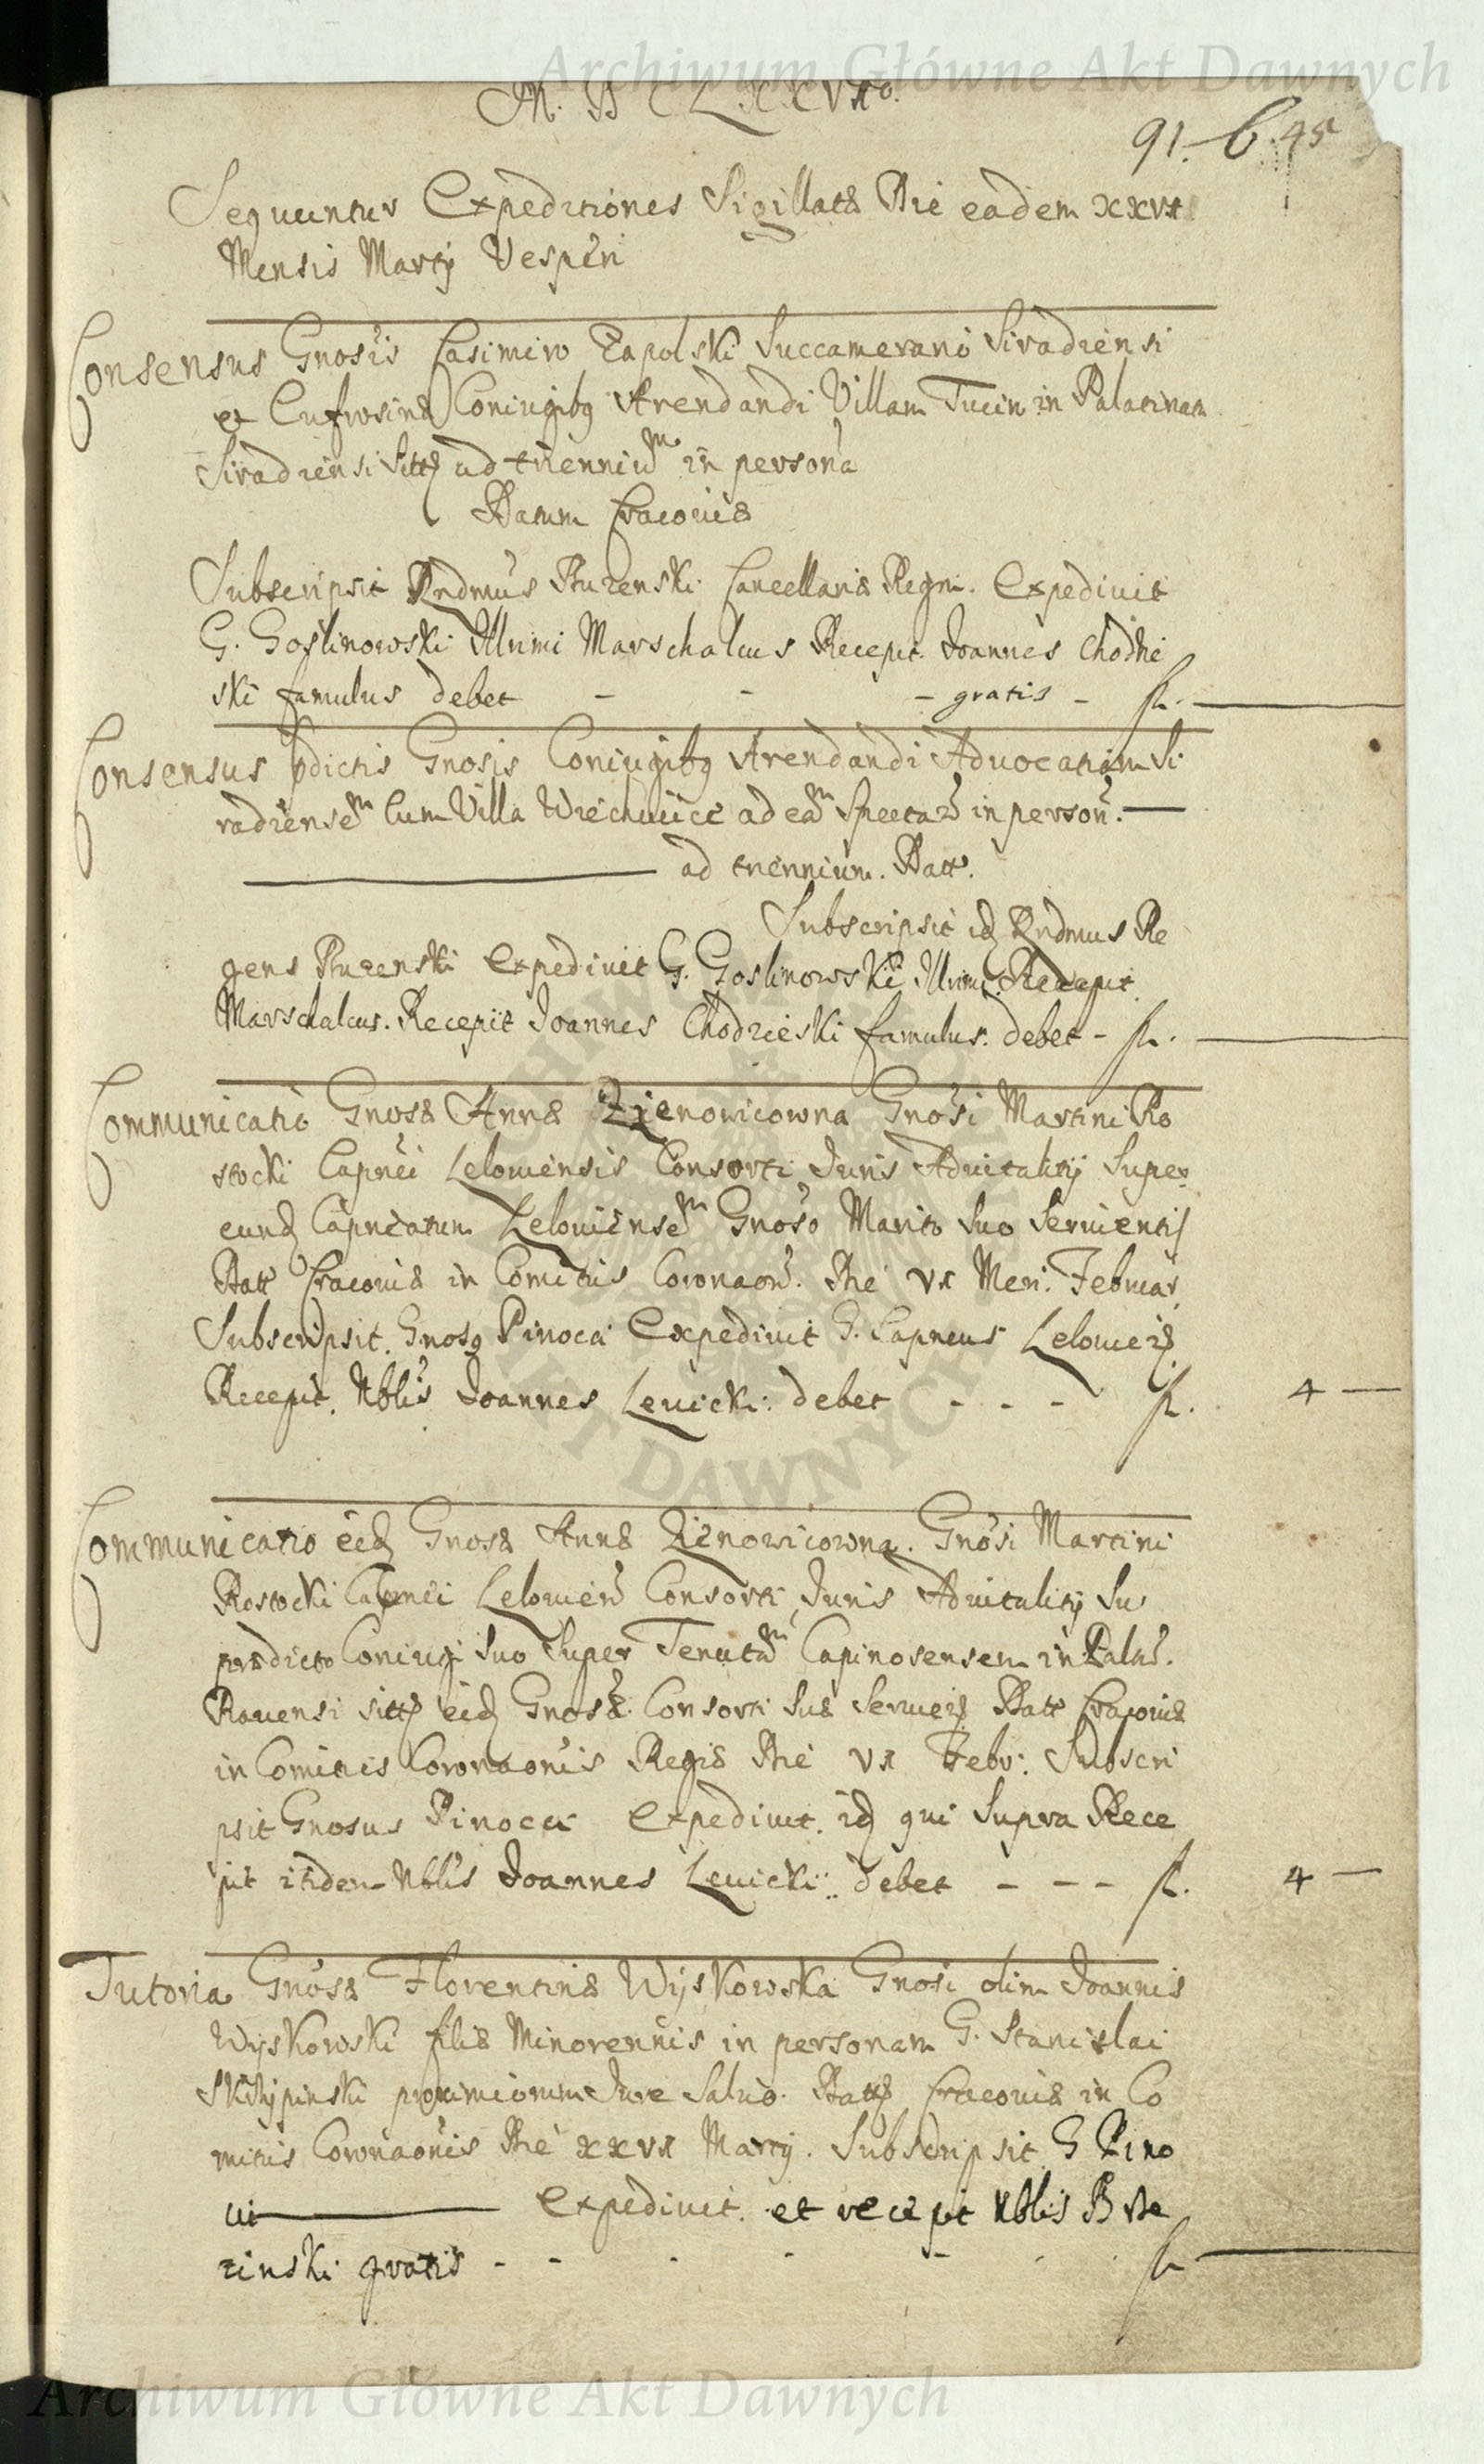 Archiwum Główne Akt Dawnych
M. D C L X X VI to.
91. 6. 45
Sequuntur Expeditiones Sigillatæ Die eadem XXVI
Mensis Martij Vesperi
Consensus Gnosis Casimiro Zapolski Succamerario Siradiensi
et Eufrosinæ Coniugibq Arendandi Villam Tucin in Palatinatu
Siradiensi sitt ad trienniu m in persona
Datum Cracoviæ
Subscripsit Rndmus Cancellariæ Regni. Expedivit
G. Goslinowski Illrimi Marschalcus Recepit Joannes Chodzie
ski famulus debet - - - gratis - fl. —
Consensus pdictis Gnosis Coniugibq Arendandi Advocatiam Si
radiense m cum Villa ad ea m spectan in person. —
— ad triennium. Datt.
Subscripsit id Rndmus Re
gens Expedivit G. Goslinowski Illrimi Recepit
Marschalcus. Recepit Joannes Chodzieski famulus. debet - fl. —
Communicatio Gnosæ Annæ Zienowicowna Gnosi Martini Ro
stocki Capnei Leloviensis Consorti Juris Advitalitij super
eund Capneatum Leloviense m Gnoso Marito suo servientis
Datt Cracoviæ in Comitiis Coronaon. Die VI Men. Februar.
Subscripsit. Gnosq Pinocci Expedivit G. Capneus Lelovien
Recepit. Nblis Joannes Levicki: debet - - - fl. 4 —
Communicatio eid Gnosæ Annæ Zienowicowna. Gnosi Martini
Rostocki Capnei Lelovien Consorti Juris Advitalitij su
prædicto Coniugi suo super Tenuta m Capinosensem in Palat.
Ravensi sitt eid Gnosæ Consorti suæ Datt Cracoviæ
in Comitiis Coronaonis Regis Die VI Febr: Subscri
psit Gnosus Pinocci Expedivit. id qui supra Rece
pit itidem Nblis Joannes Levicki: debet - - - fl. 4 —
Tutoria Gnosæ Florentinæ Wyskowska Gnosi olim Joannis
Wyskowski filiæ Minorennis in personam G. Stanislai
proximiorum Jure Salvo. Datt Cracoviæ in Co
mitiis Coronaonis Die XXVI Martij. Subscripsit G Pino
cci — Expedivit. et recepit Nblis
zinski gratis - - - - - fl —
Archiwum Główne Akt Dawnych